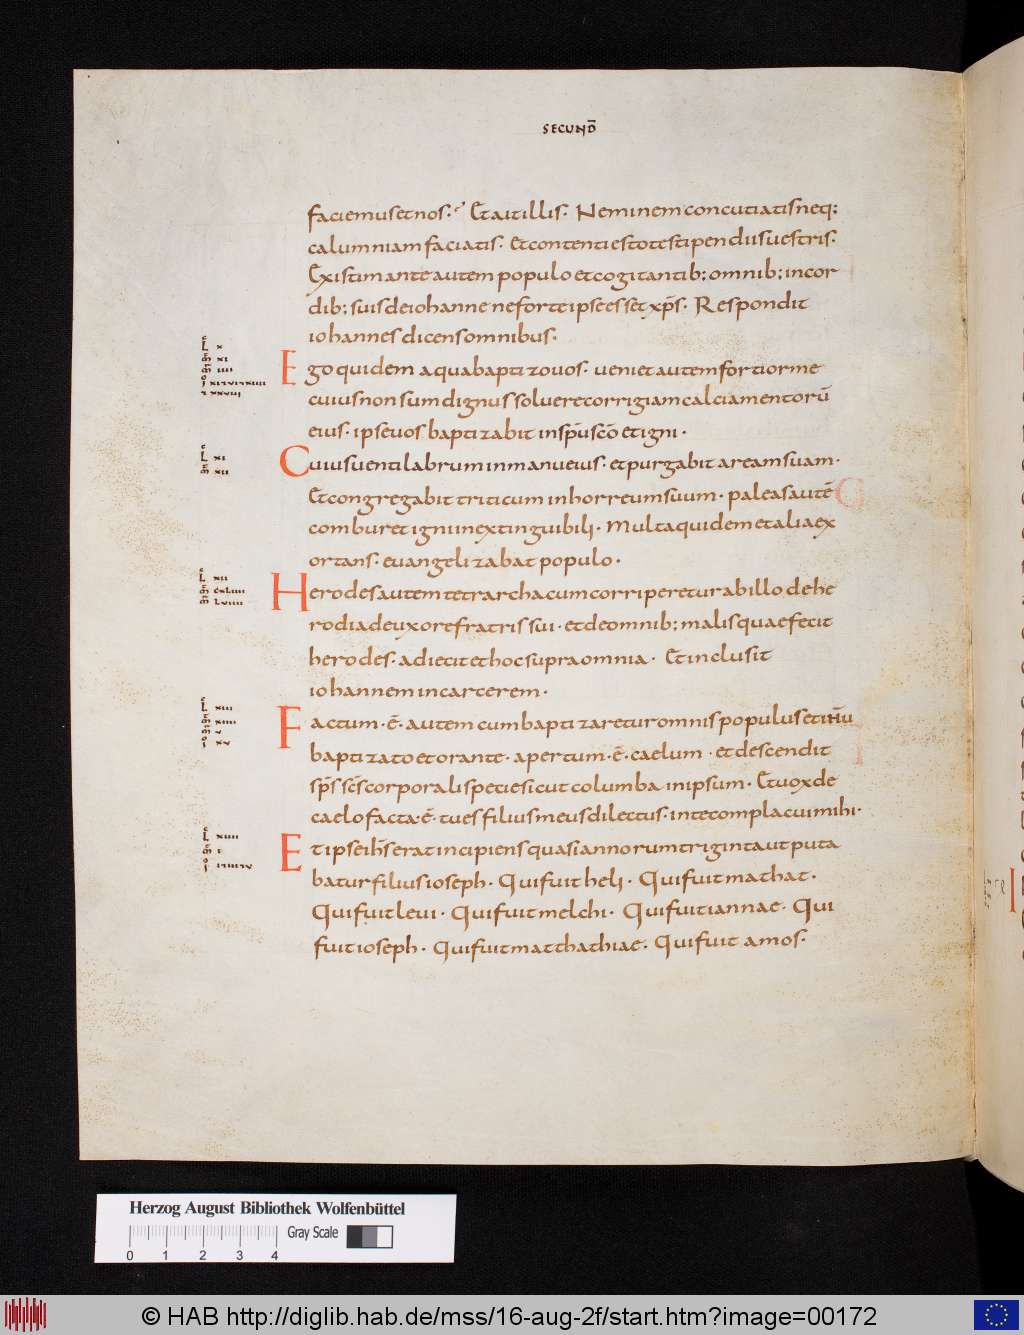 SECUND̅
faciemus et nos. Et ait illis. Neminem concutiatis neq;
calumniam faciatis. Et contenti estote stipendiis uestris.
Existimante autem populo et cogitantib; omnib; in cor
dib; suis de iohanne ne forte ipse esset xp̅s. Respondit
iohannes dicens omnibus.
L x
Ego quidem aqua baptizo uos. ueniet autem fortior me
m̅ xi
m̅ iiii
cuius non sum dignus soluere corrigiam calciamentorū
eius. ipse uos baptizabit in sp̅u sc̅o et igni.
L xi
Cuius uentilabrum in manu eius. et purgabit aream suam.
m̅ xii
Et congregabit triticum in horreum suum. paleas autē
comburet igni inextinguibili. Multa quidem et alia ex
ortans. euangelizabat populo.
L xii
Herodes autem tetrarcha cum corriperetur ab illo de he
m̅ cxliiii
m̅ lviiii
rodiade uxore fratris sui. et de omnib; malis quae fecit
herodes. adiecit et hoc supra omnia. Et inclusit
iohannem in carcerem.
L xiii
Factum. ē. autem cum baptizaretur omnis populus et ih̅u
m̅ xiiii
m̅ v
i xv
baptizato et orante. apertum. ē. caelum. et descendit
sp̅s sc̅s corporali specie sicut columba in ipsum. Et uox de
caelo facta. ē. tu es filius meus dilectus. in te complacui mihi.
L xiiii
Et ipse ih̅s erat incipiens quasi annorum triginta ut puta
m̅ i
batur filius ioseph. Qui fuit heli. Qui fuit mathat.
Qui fuit leui. Qui fuit melchi. Qui fuit iannae. Qui
fuit ioseph. Qui fuit matthathiae. Qui fuit amos.
Herzog August Bibliothek Wolfenbüttel
Gray Scale
0 1 2 3 4
© HAB http://diglib.hab.de/mss/16-aug-2f/start.htm?image=00172